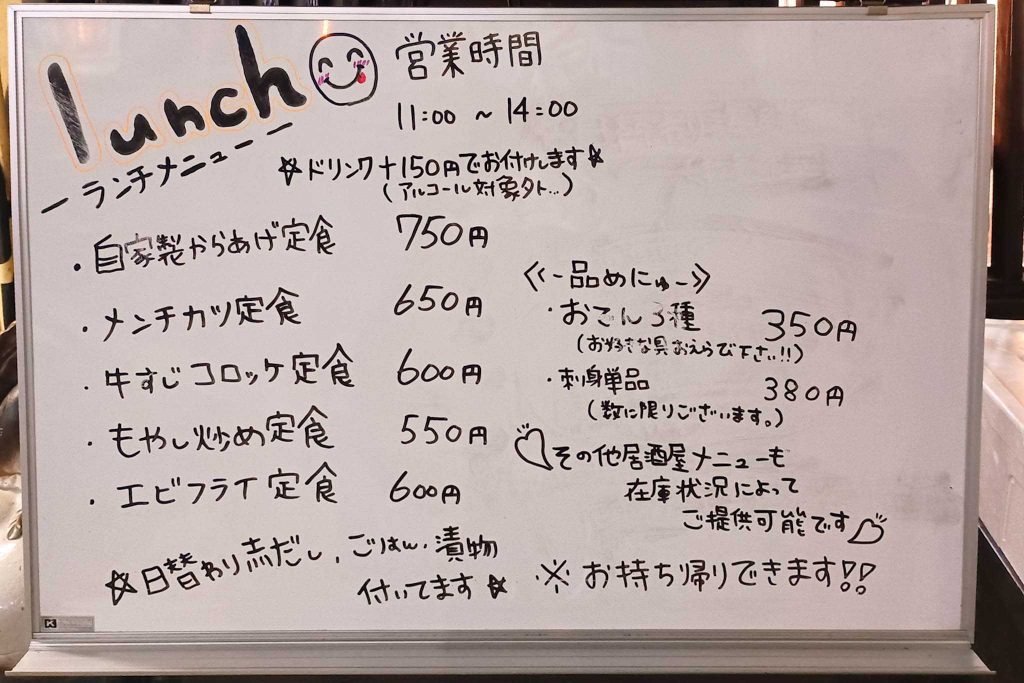 lunch
営業時間
11:00 ~ 14:00
ーランチメニューー
☆ドリンク+150円でお付けします☆
(アルコール対象外...)
・自家製からあげ定食 750円
・メンチカツ定食 650円
・牛すじコロッケ定食 600円
・もやし炒め定食 550円
・エビフライ定食 600円
☆日替わり赤だし、ごはん、漬物
付いてます☆
《一品めにゅー》
・おでん3種 350円
(お好きな具おえらび下さい!!)
・刺身単品 380円
(数に限りございます。)
♡その他居酒屋メニューも
在庫状況によって
ご提供可能です♡
※お持ち帰りできます!!
K